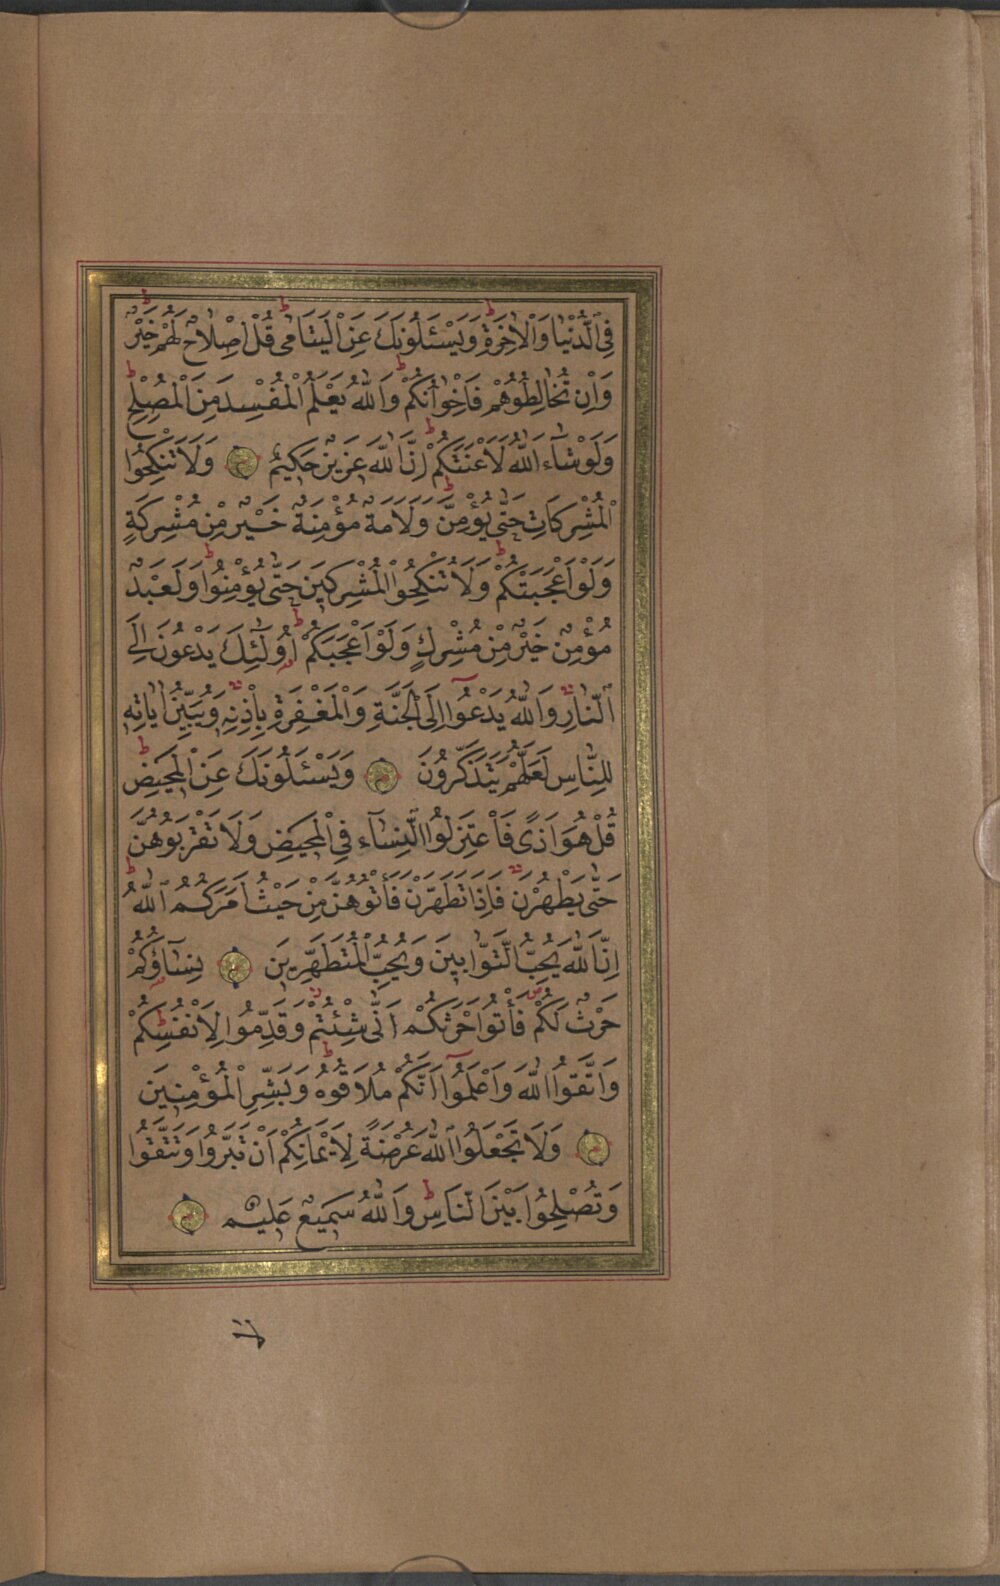 فِي الدُّنْيَا وَالْاٰخِرَةِ وَيَسْـَٔلُونَكَ عَنِ الْيَتَامٰى قُلْ اِصْلَاحٌ لَهُمْ خَيْرٌ
وَاِنْ تُخَالِطُوهُمْ فَاِخْوَانُكُمْ وَاللّٰهُ يَعْلَمُ الْمُفْسِدَ مِنَ الْمُصْلِحِ
وَلَوْ شَاۤءَ اللّٰهُ لَاَعْنَتَكُمْ اِنَّ اللّٰهَ عَزِيزٌ حَكِيمٌ وَلَا تَنْكِحُوا
الْمُشْرِكَاتِ حَتّٰى يُؤْمِنَّ وَلَاَمَةٌ مُؤْمِنَةٌ خَيْرٌ مِنْ مُشْرِكَةٍ
وَلَوْ اَعْجَبَتْكُمْ وَلَا تُنْكِحُوا الْمُشْرِكِينَ حَتّٰى يُؤْمِنُوا وَلَعَبْدٌ
مُؤْمِنٌ خَيْرٌ مِنْ مُشْرِكٍ وَلَوْ اَعْجَبَكُمْ اُولٰۤئِكَ يَدْعُونَ اِلَى
النَّارِ وَاللّٰهُ يَدْعُوۤا اِلَى الْجَنَّةِ وَالْمَغْفِرَةِ بِاِذْنِهِ وَيُبَيِّنُ اٰيَاتِهِ
لِلنَّاسِ لَعَلَّهُمْ يَتَذَكَّرُونَ وَيَسْـَٔلُونَكَ عَنِ الْمَحِيضِ
قُلْ هُوَ اَذًى فَاعْتَزِلُوا النِّسَاۤءَ فِي الْمَحِيضِ وَلَا تَقْرَبُوهُنَّ
حَتّٰى يَطْهُرْنَ فَاِذَا تَطَهَّرْنَ فَأْتُوهُنَّ مِنْ حَيْثُ اَمَرَكُمُ اللّٰهُ
اِنَّ اللّٰهَ يُحِبُّ التَّوَّابِينَ وَيُحِبُّ الْمُتَطَهِّرِينَ نِسَاۤؤُكُمْ
حَرْثٌ لَكُمْ فَأْتُوا حَرْثَكُمْ اَنّٰى شِئْتُمْ وَقَدِّمُوا لِاَنْفُسِكُمْ
وَاتَّقُوا اللّٰهَ وَاعْلَمُوۤا اَنَّكُمْ مُلَاقُوهُ وَبَشِّرِ الْمُؤْمِنِينَ
وَلَا تَجْعَلُوا اللّٰهَ عُرْضَةً لِاَيْمَانِكُمْ اَنْ تَبَرُّوا وَتَتَّقُوا
وَتُصْلِحُوا بَيْنَ النَّاسِ وَاللّٰهُ سَمِيعٌ عَلِيمٌ